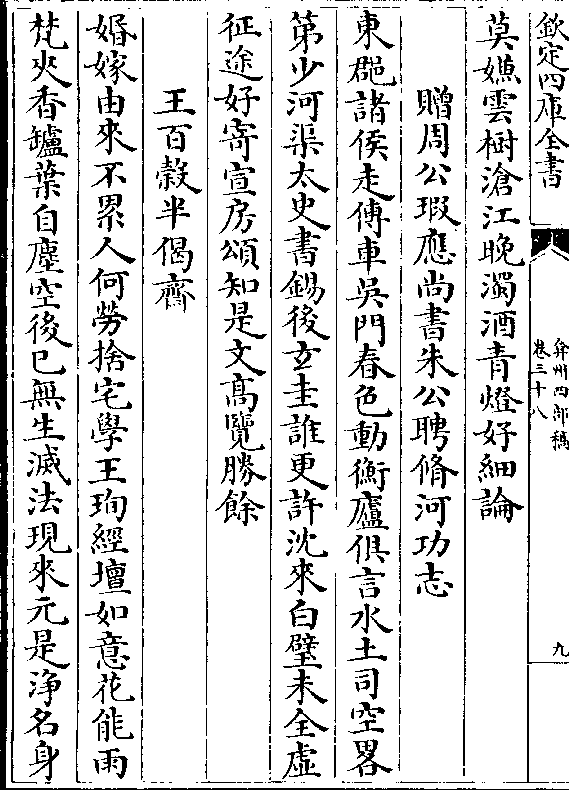 欽定四庫全書
弇州四部稿
卷三十八
九
莫嫌雲樹滄江晚濁酒青燈好細論
贈周公瑕應尚書朱公聘脩河功志
東郡諸侯走傳車吳門春色動衡廬俱言水土司空畧
第少河渠太史書錫後玄圭誰更許沈來白璧未全虛
征途好寄宣房頌知是文高覽勝餘
王百穀半偈齋
婚嫁由來不累人何勞捨宅學王珣經壇如意花能雨
梵夾香罏葉自塵空後已無生滅法現來元是浄名身